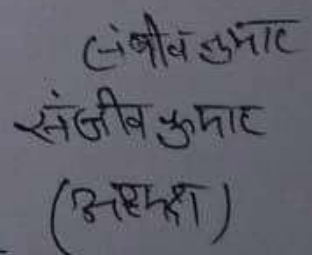 संजीव कुमार
संजीव कुमार
(अध्यक्ष)